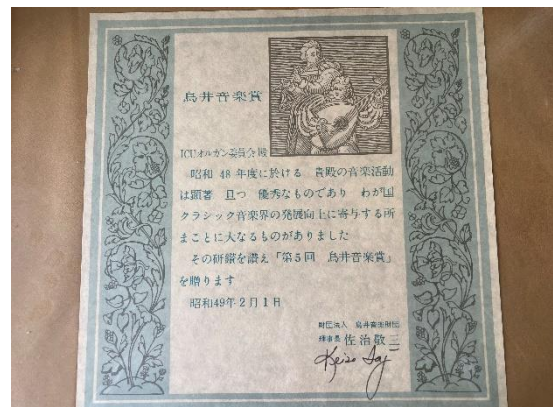 鳥井音楽賞
ICUオルガン委員会殿
昭和 48 年度に於ける 貴殿の音楽活動
は顕著 且つ 優秀なものであり わが国
クラシック音楽界の発展向上に寄与する所
まことに大なるものがありました
その研鑽を讃え「第5回 鳥井音楽賞」
を贈ります
昭和49年2月1日
財団法人 鳥井音楽財団
理事長 佐治敬三
Keizo Saji